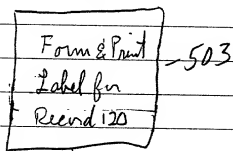 Form & Print
Label for
Record 120
503